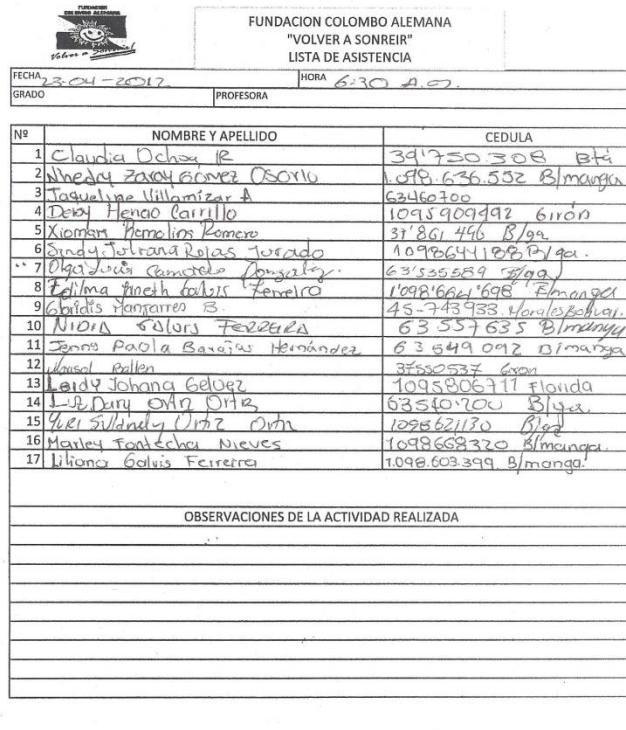 FUNDACION
COLOMBO ALEMANA
Volver a Sonreir!
FUNDACION COLOMBO ALEMANA
"VOLVER A SONREIR"
LISTA DE ASISTENCIA
FECHA 23-04-2012 HORA 6:30 A.M.
GRADO PROFESORA
Nº NOMBRE Y APELLIDO CEDULA
1 Claudia Ochoa R 39'750.308 Btá
2 Nhedry Zaray Gomez Osorio 1.098.636.552 B/manga
3 Jaqueline Villamizar A 63460700
4 Deisy Henao Carrillo 1095909492 Girón
5 Xiomara Remolina Romero 37'861 446 B/ga
6 Sindy Juliana Rojas Jurado 1098644188 B/ga.
7 Olga Lucia Camargo 63'535589 B/ga
8 Edilma Yineth Galvis Ferreira 1'098'664'698 B/manga
9 Manjarres B. 45-743933. Morales Bolivar.
10 Nidia Galvis Ferreira 63 557 635 B/manga
11 Jenny Paola Barajas Hernández 63 549 092 B/manga
12 Marisol Ballen 37550537 Giron
13 Leidy Johana Gelvez 1095806711 Florida
14 Luz Dary Ortiz Ortiz 63540.200 B/ga.
15 Yuri Ortiz Ortiz 1098621130 B/ga
16 Marley Fontecha Nieves 1098668320 B/manga.
17 Liliana Galvis Ferreira 1.098.603.399 B/manga.
OBSERVACIONES DE LA ACTIVIDAD REALIZADA